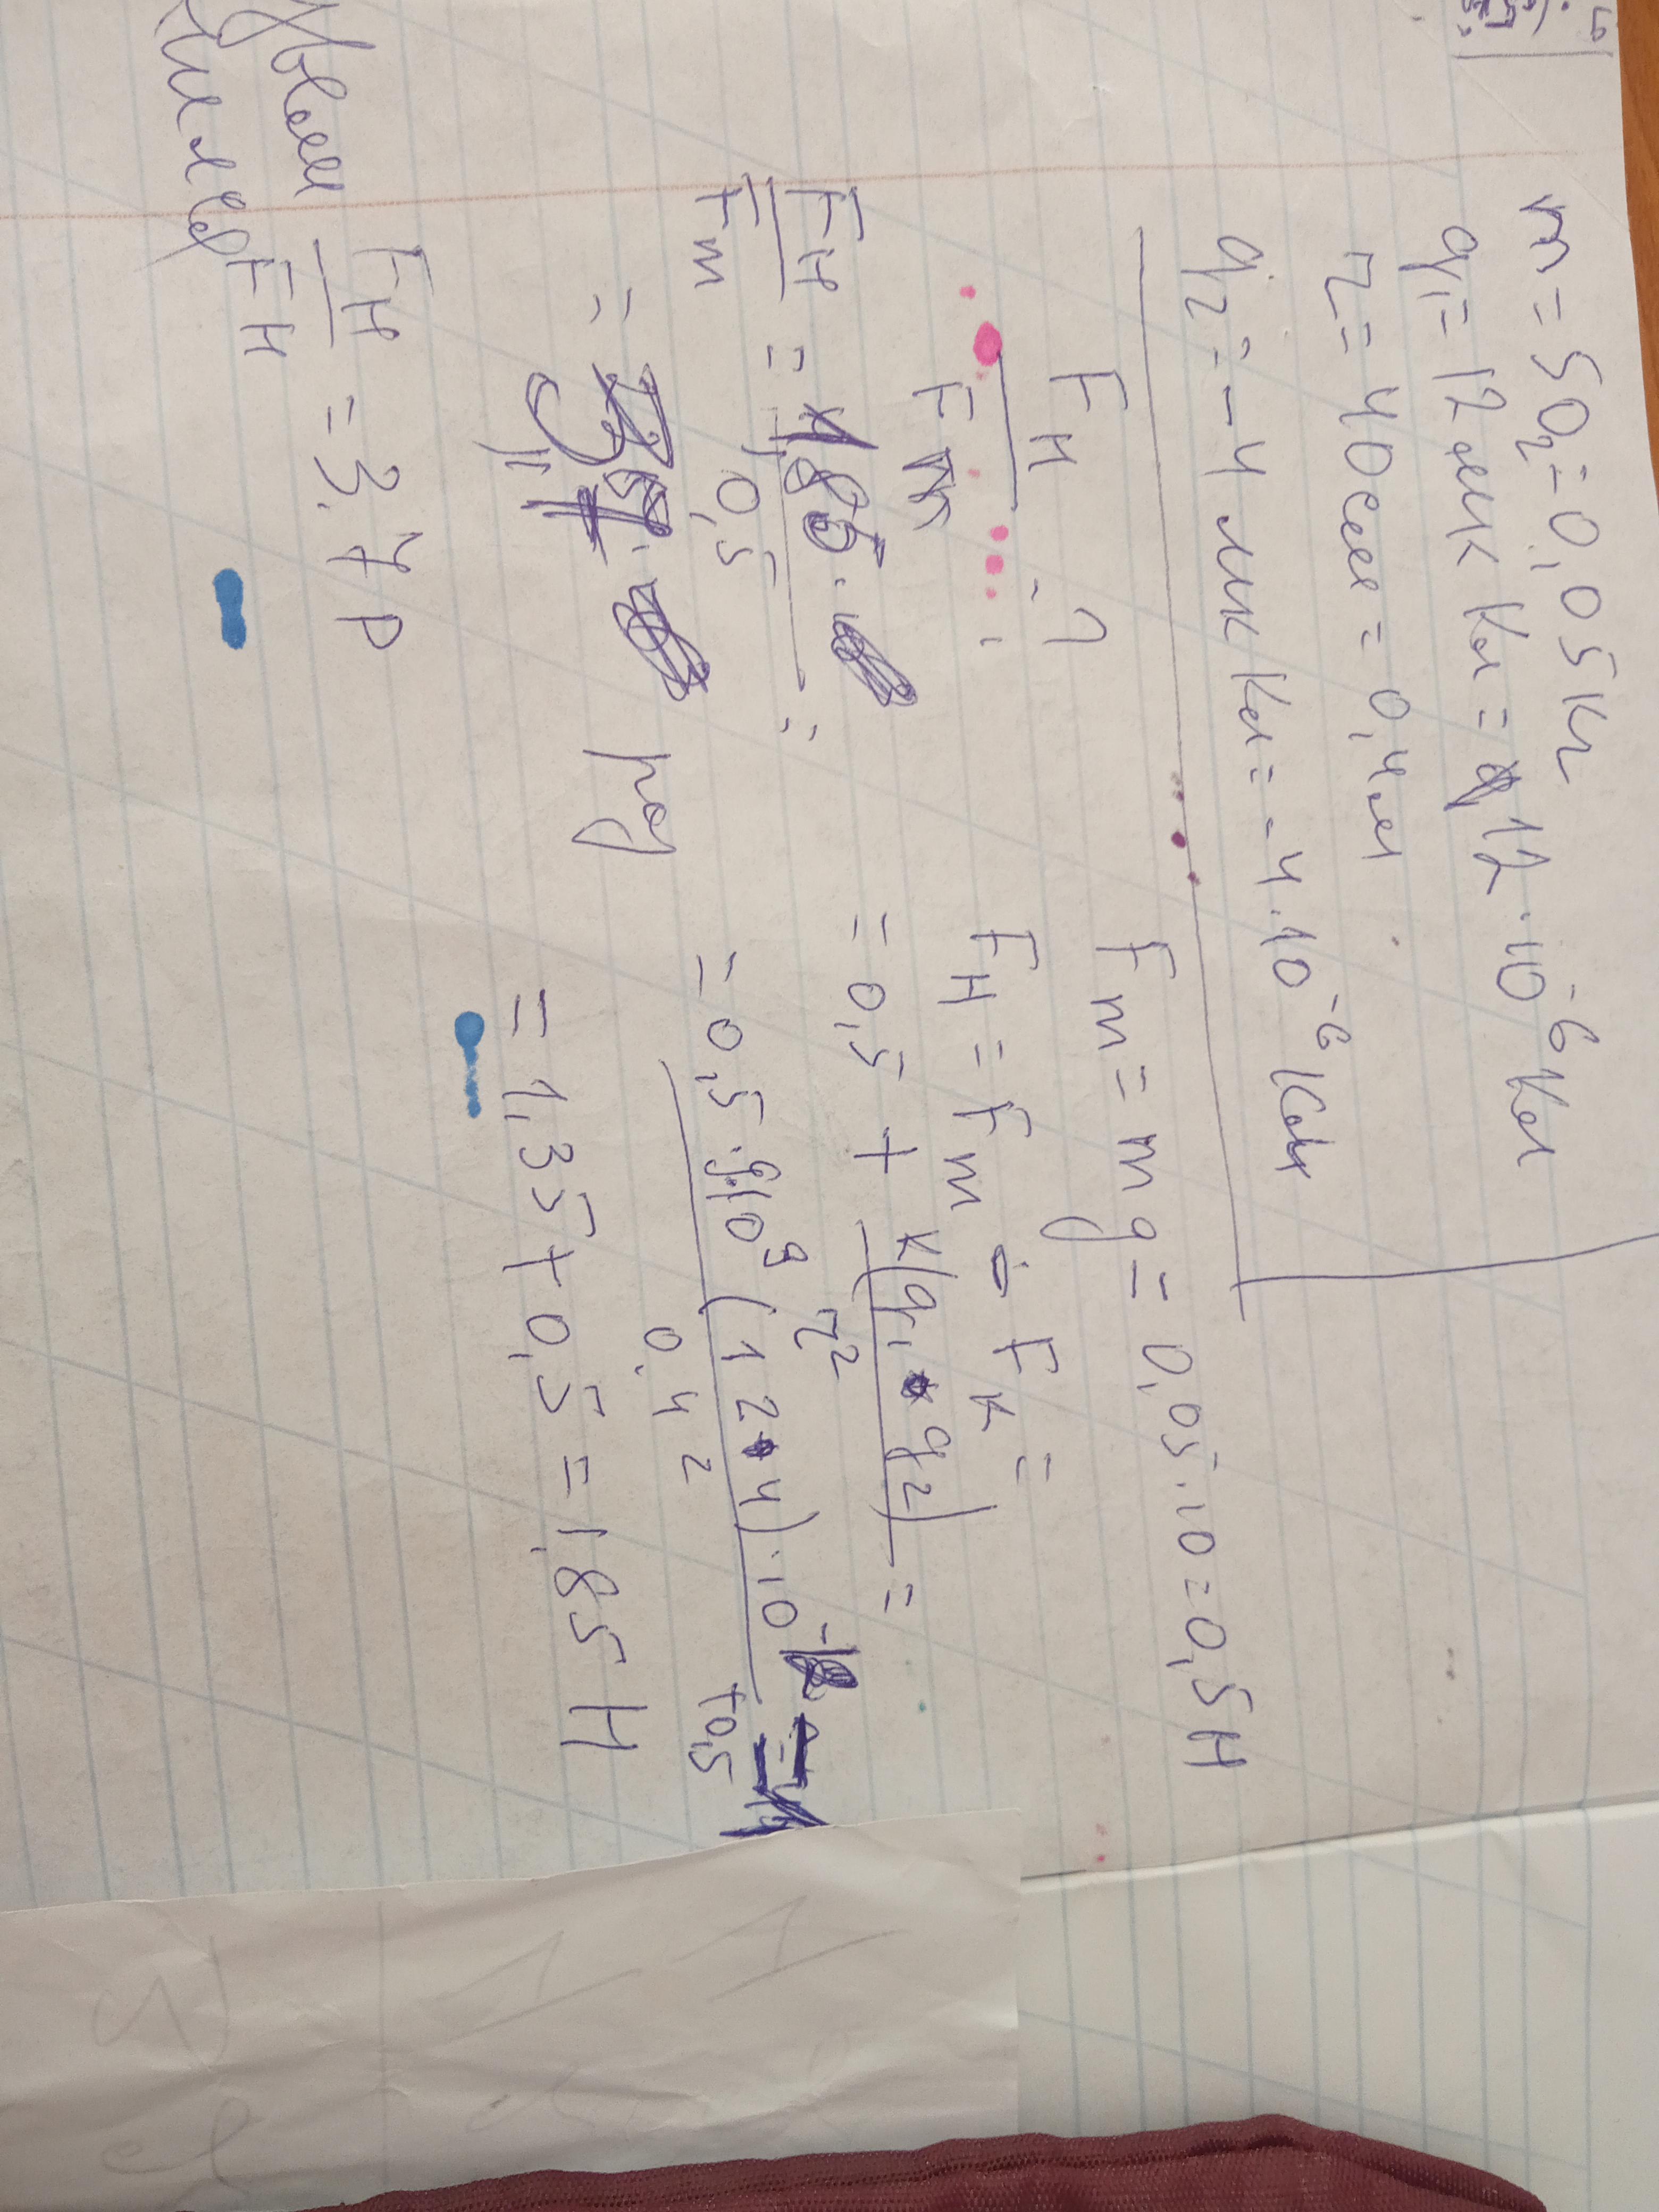 m = 50г = 0,05кг
q1 = 12 мкКл = 12 · 10⁻⁶ Кл
r = 40см = 0,4м
q2 = -4 мкКл = -4 · 10⁻⁶ Кл
Fн - ?
Fт
Fт = mg = 0,05 · 10 = 0,5 Н
Fн = Fт + Fк =
= 0,5 + k(q1 · q2) / r² =
= 0,5 · 9·10⁹ (12 · 4) · 10 / 0,4² + 0,5
= 1,35 + 0,5 = 1,85 Н
Fн / Fт = 1,85 / 0,5 =
= 3,7 раз
Fн / Fн = 3,7 р